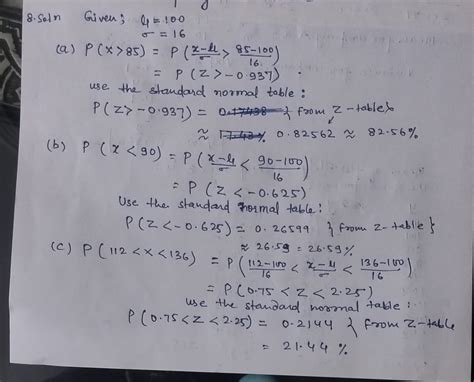 8. Soln Given; μ = 100
σ = 16
(a) P(x>85) = P(x-μ/σ > 85-100/16)
= P(Z>-0.937)
use the standard normal table:
P(Z>-0.937) = 0.17438 { from Z-table}
≈ 17.43% 0.82562 ≈ 82.56%
(b) P(x<90) = P(x-μ/σ < 90-100/16)
= P(Z<-0.625)
Use the standard normal table:
P(Z<-0.625) = 0.26599 { from z-table }
≈ 26.59 = 26.59%
(c) P(112<x<136) = P(112-100/16 < x-μ/σ < 136-100/16)
= P(0.75<Z<2.25)
use the standard normal table:
P(0.75<Z<2.25) = 0.2144 { from Z-table
= 21.44 %